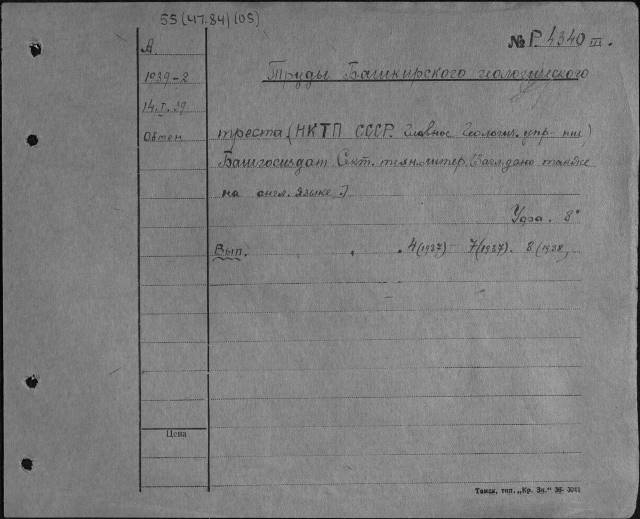 55 (47.84) (05)
№ Р. 4340 III.
А
1939-2
14.I.39
Обмен
Труды Башкирского геологического
треста (НКТП СССР. Главное Геологич. упр-ние)
Башгосиздат Сект. техн. литер. (Загл. дано также
на англ. языке.)
Уфа. 8°
Вып. 4 (1937) 7 (1937). 8 (1938,
Цена
Томск, тип. „Кр. Зн." 36-